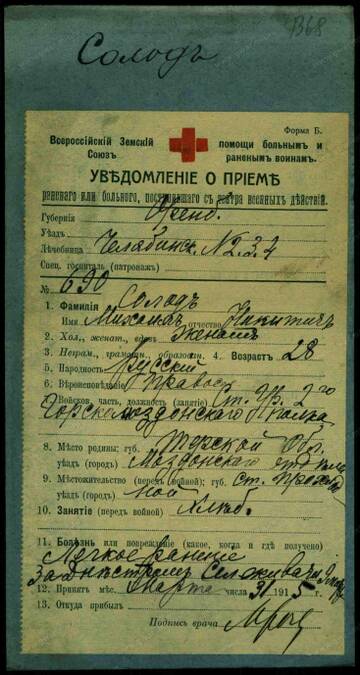 1368
Солодъ
Форма Б.
Всероссійскій Земскій Союзъ
помощи больнымъ и раненымъ воинамъ.
УВѢДОМЛЕНІЕ О ПРІЕМѢ
раненаго или больного, поступившаго съ театра военныхъ дѣйствій.
Губернія Оренб.
Уѣздъ
Лѣчебница Челябинск. N 2.3.4
Спец. госпиталь (патронажъ)
№ 690
1. Фамилія Солодъ
Имя Михаилъ отчество Никитичъ
2. Хол., женат., вдов. Женатъ
3. Неграм., грамотн., образован. 4. Возрастъ 28
5. Народность Русскій
6. Вѣроисповѣданіе Правос
7. Войсков. часть, должность (занятіе) Ст. Ур. 2го
Горско-моздокскаго полка
8. Мѣсто родины; губ. Терской Обл.
уѣздъ (городъ) Моздокскаго
9. Мѣстожительство (передъ войной); губ. ст.
уѣздъ (городъ)
10. Занятіе (передъ войной) Хлѣб.
11. Болѣзнь или поврежденіе (какое, когда и гдѣ получено)
Легкое раненіе
За Днѣстромъ
12. Принятъ мѣс. Марта числа 31 1915 г.
13. Откуда прибылъ
Подпись врача